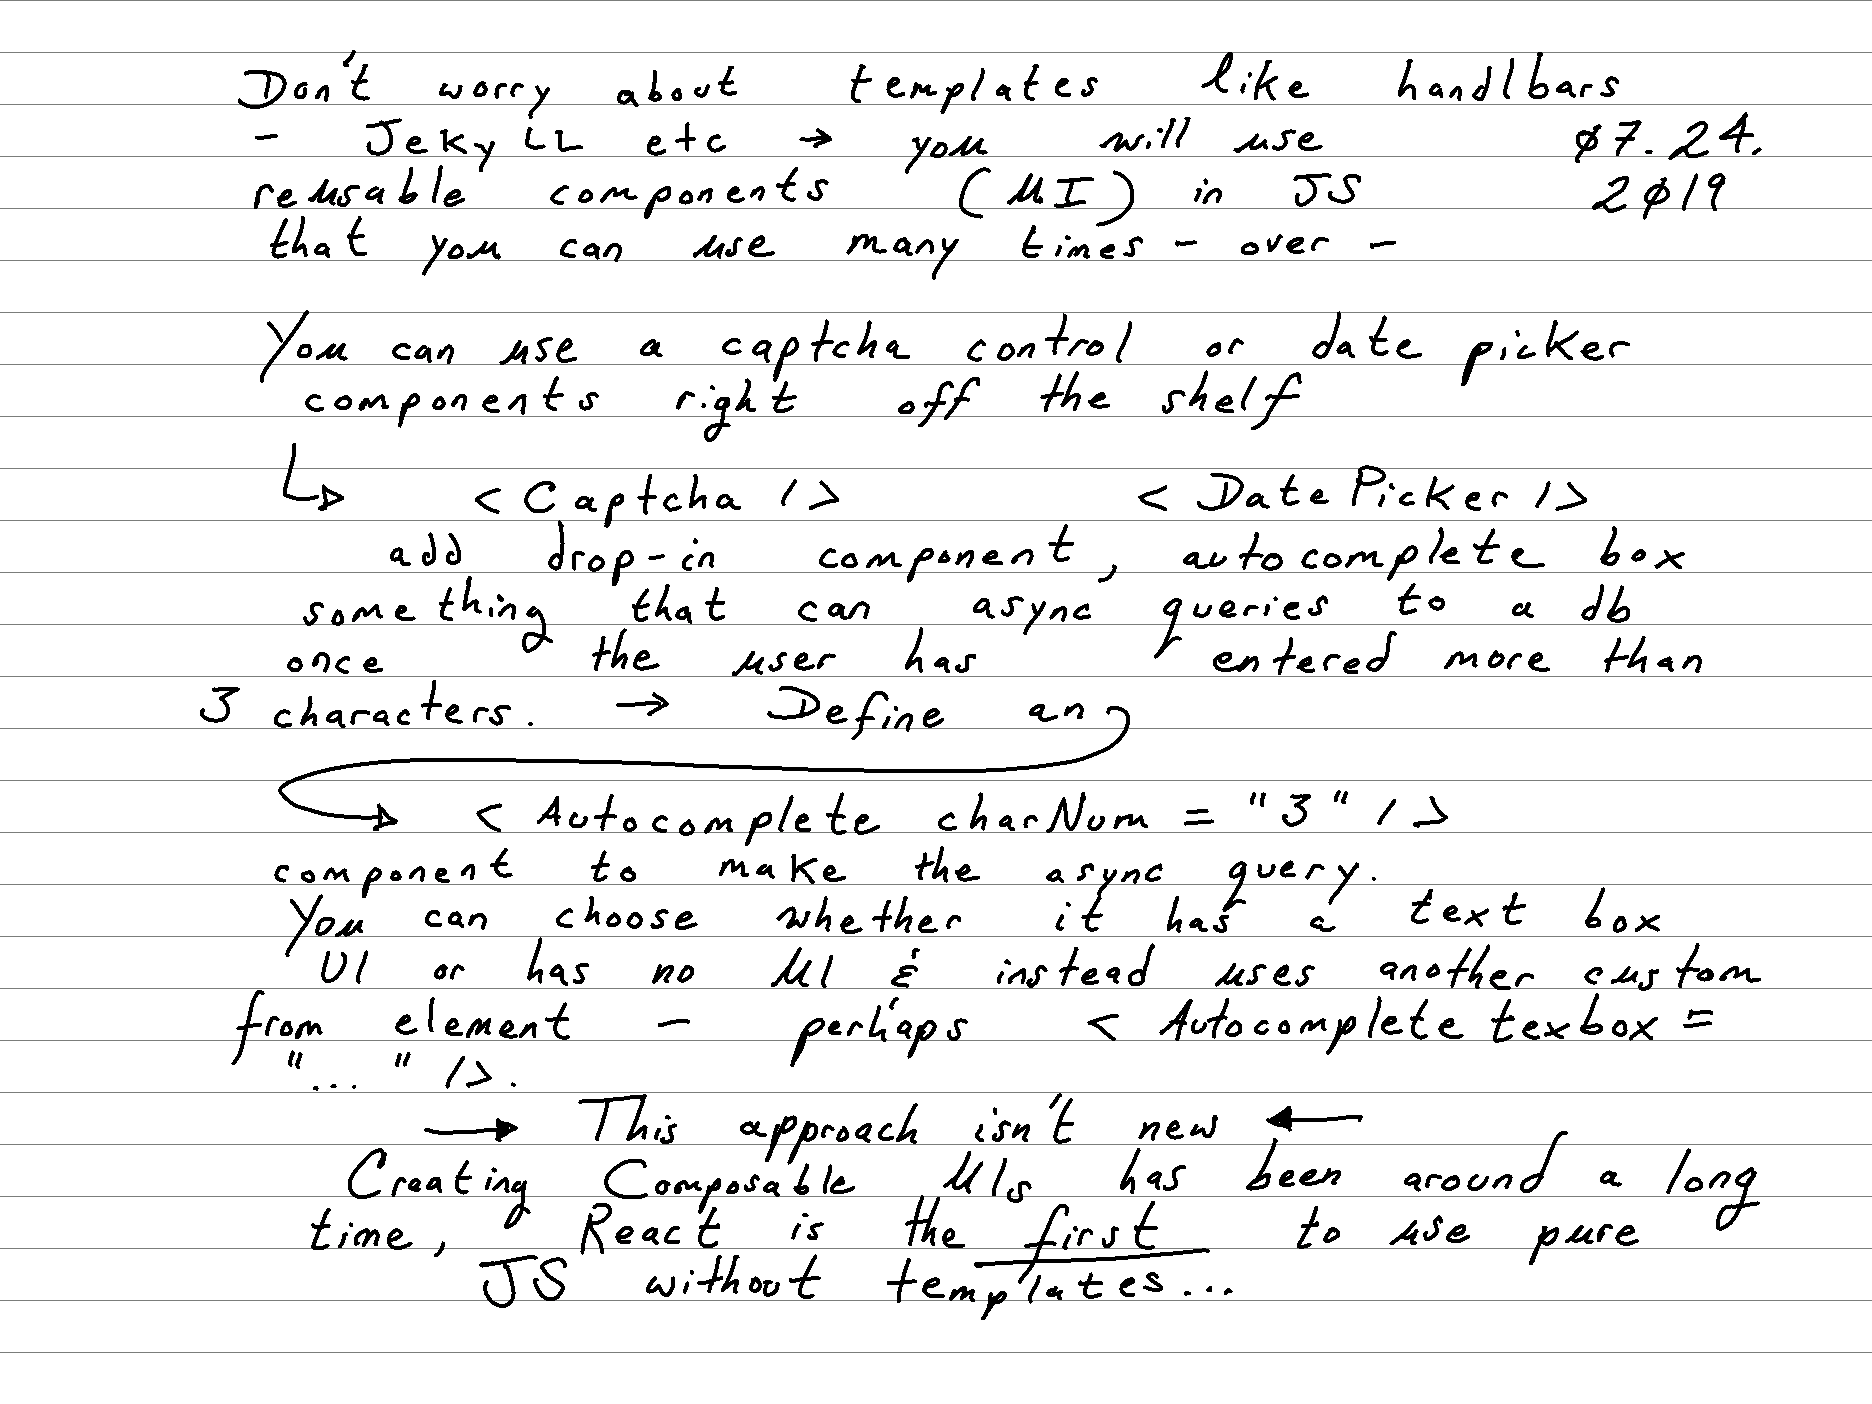 Don't worry about templates like handlbars
- JekyLL etc → you will use 07.24.
reusable components (UI) in JS 2019
that you can use many times - over -
You can use a captcha control or date picker
components right off the shelf
<Captcha /> <DatePicker />
add drop-in component, autocomplete box
something that can async queries to a db
once the user has entered more than
3 characters. → Define an
<Autocomplete charNum = "3" />
component to make the async query.
You can choose whether it has a text box
UI or has no UI & instead uses another custom
from element - perhaps <Autocomplete texbox =
"..." />.
→ This approach isn't new ←
Creating Composable UIs has been around a long
time, React is the first to use pure
JS without templates...